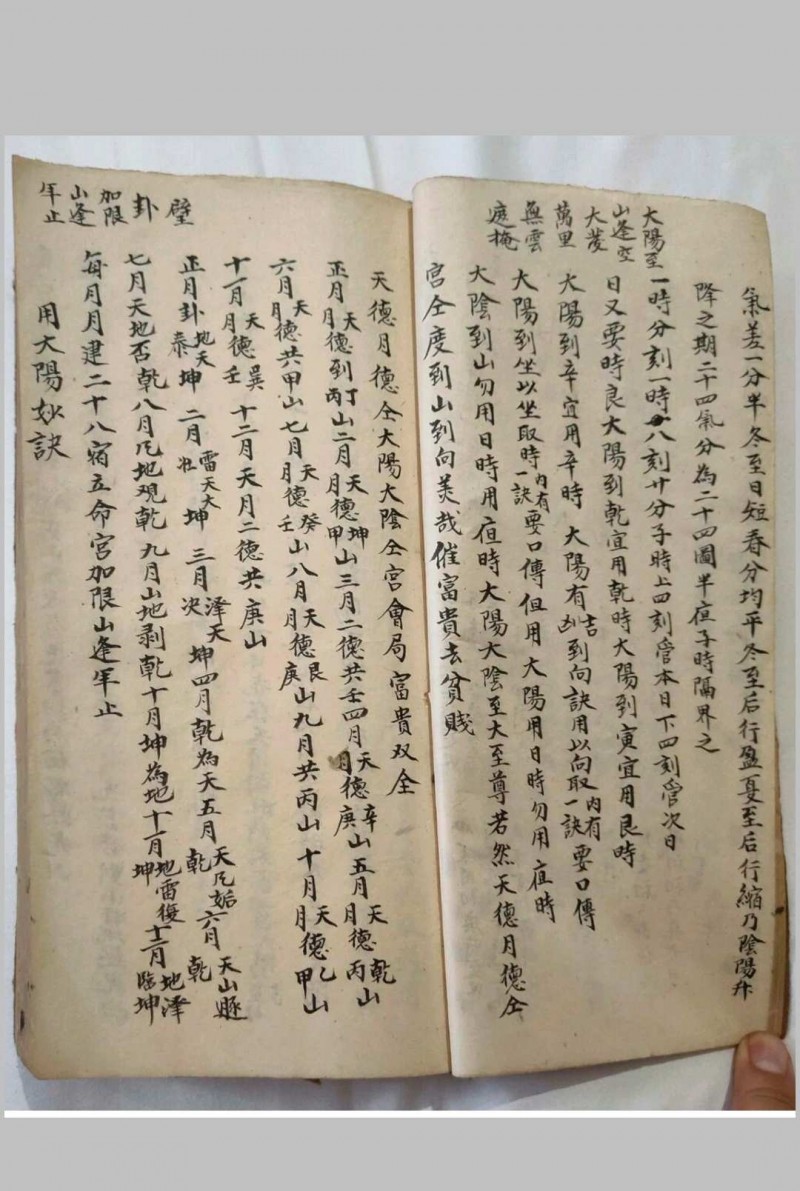 氣差一分半冬至日短春分均平冬至后行盈夏至后行縮乃陰陽升
降之期二十四氣分為二十四圖半夜子時隔界之
大陽至
山逢空
大菱
萬里
無雲
遮掩
一時分刻一時八刻廿分子時上四刻管本日下四刻管次日
日又要時良大陽到乾宜用乾時大陽到寅宜用艮時
大陽到辛宜用辛時 大陽有吉凶到向訣用以向取一訣內有要口傳
大陽到坐以坐取時一訣內有要口傳但用大陽用日時勿用夜時
大陰到山勿用日時用夜時大陽大陰至大至尊若然天德月德仝
宮仝度到山到向美哉催富貴去貧賤
天德月德仝大陽大陰仝宮會局富貴双全
正月天德到丁月德丙山二月天德坤月德甲山三月二德共壬四月天德辛月德庚山五月天德乾月德丙山
六月天月德共甲山七月天德癸月德壬山八月天德艮月德庚山九月共丙山十月天德乙月德甲山
十一月天德巽月德壬 十二月天月二德共庚山
壁
卦
加限
山逢
年止
正月卦地天泰坤 二月雷天大壯坤 三月澤天夬坤四月乾為天五月天风姤乾六月天山遯乾
七月天地否乾八月风地观乾九月山地剥乾十月坤為地十一月地雷復坤十二月地澤臨坤
每月月建二十八宿立命宮加限山逢年止
用大陽妙訣